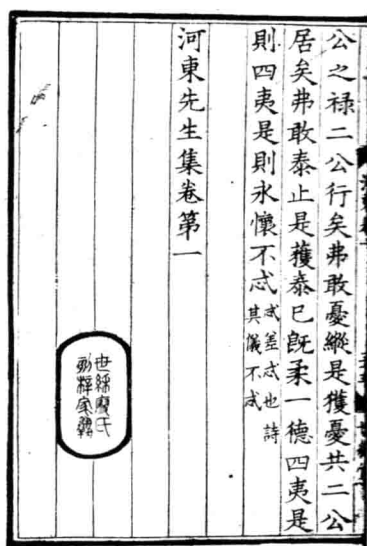 公之禄二公行矣弗敢憂縱是獲憂共二公
居矣弗敢泰止是獲泰已既柔一德四夷是
則四夷是則永懷不忒忒差忒也詩
其儀不忒
河東先生集卷第一
世綵廖氏
刻梓家塾